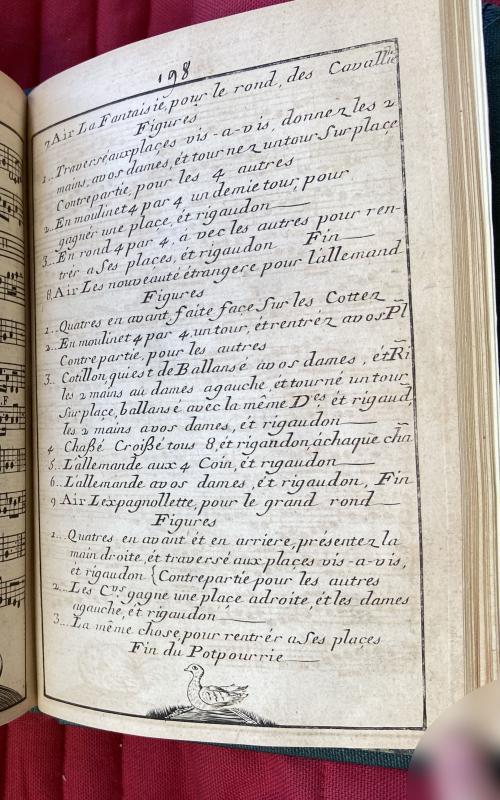 198
7 Air La Fantaisie, pour le rond, des Cavallie
Figures
1.. Traversé aux places vis-a-vis, donnez les 2
mains, avos dames, ét tournez un tour Sur place
Contrepartie, pour les 4 autres
2.. En moulinet 4 par 4 un demie tour, pour
gagner une place, ét rigaudon
3... En rond 4 par 4, á vec les autres pour ren-
trér a Ses places, ét rigaudon Fin
8. Air Les nouveauté étrangere pour l'allemand
Figures
1... Quatres en avant, faite face Sur les Cottez
2... En moulinet 4 par 4, un tour, ét rentréz avos Pl
Contrepartie, pour les autres
3.. Cotillon, qui est de Ballansé avos dames, ét Ri
les 2 mains aú dames agauche, ét tourné un tour
Sur place, ballansé avec la même D.es ét rigaud,
les 2 mains avos dames, ét rigaudon
4 Chaßé Croißé tous 8, ét rigaudon, àchaque cha
5.. L'allemande aux 4 Coin, ét rigaudon
6.. L'allemande avos dames, ét rigaudon, Fin
9 Air L'expagnollette, pour le grand rond
Figures
1... Quatres en avant ét en arriere, présentez la
main droite, ét traversé aux places vis-a-vis,
ét rigaudon { Contrepartie pour les autres
2... Les C.vs. gagne une place adroite, ét les dames
agauche, ét rigaudon
3... La même chose, pour rentrér aSes places
Fin du Potpourrie